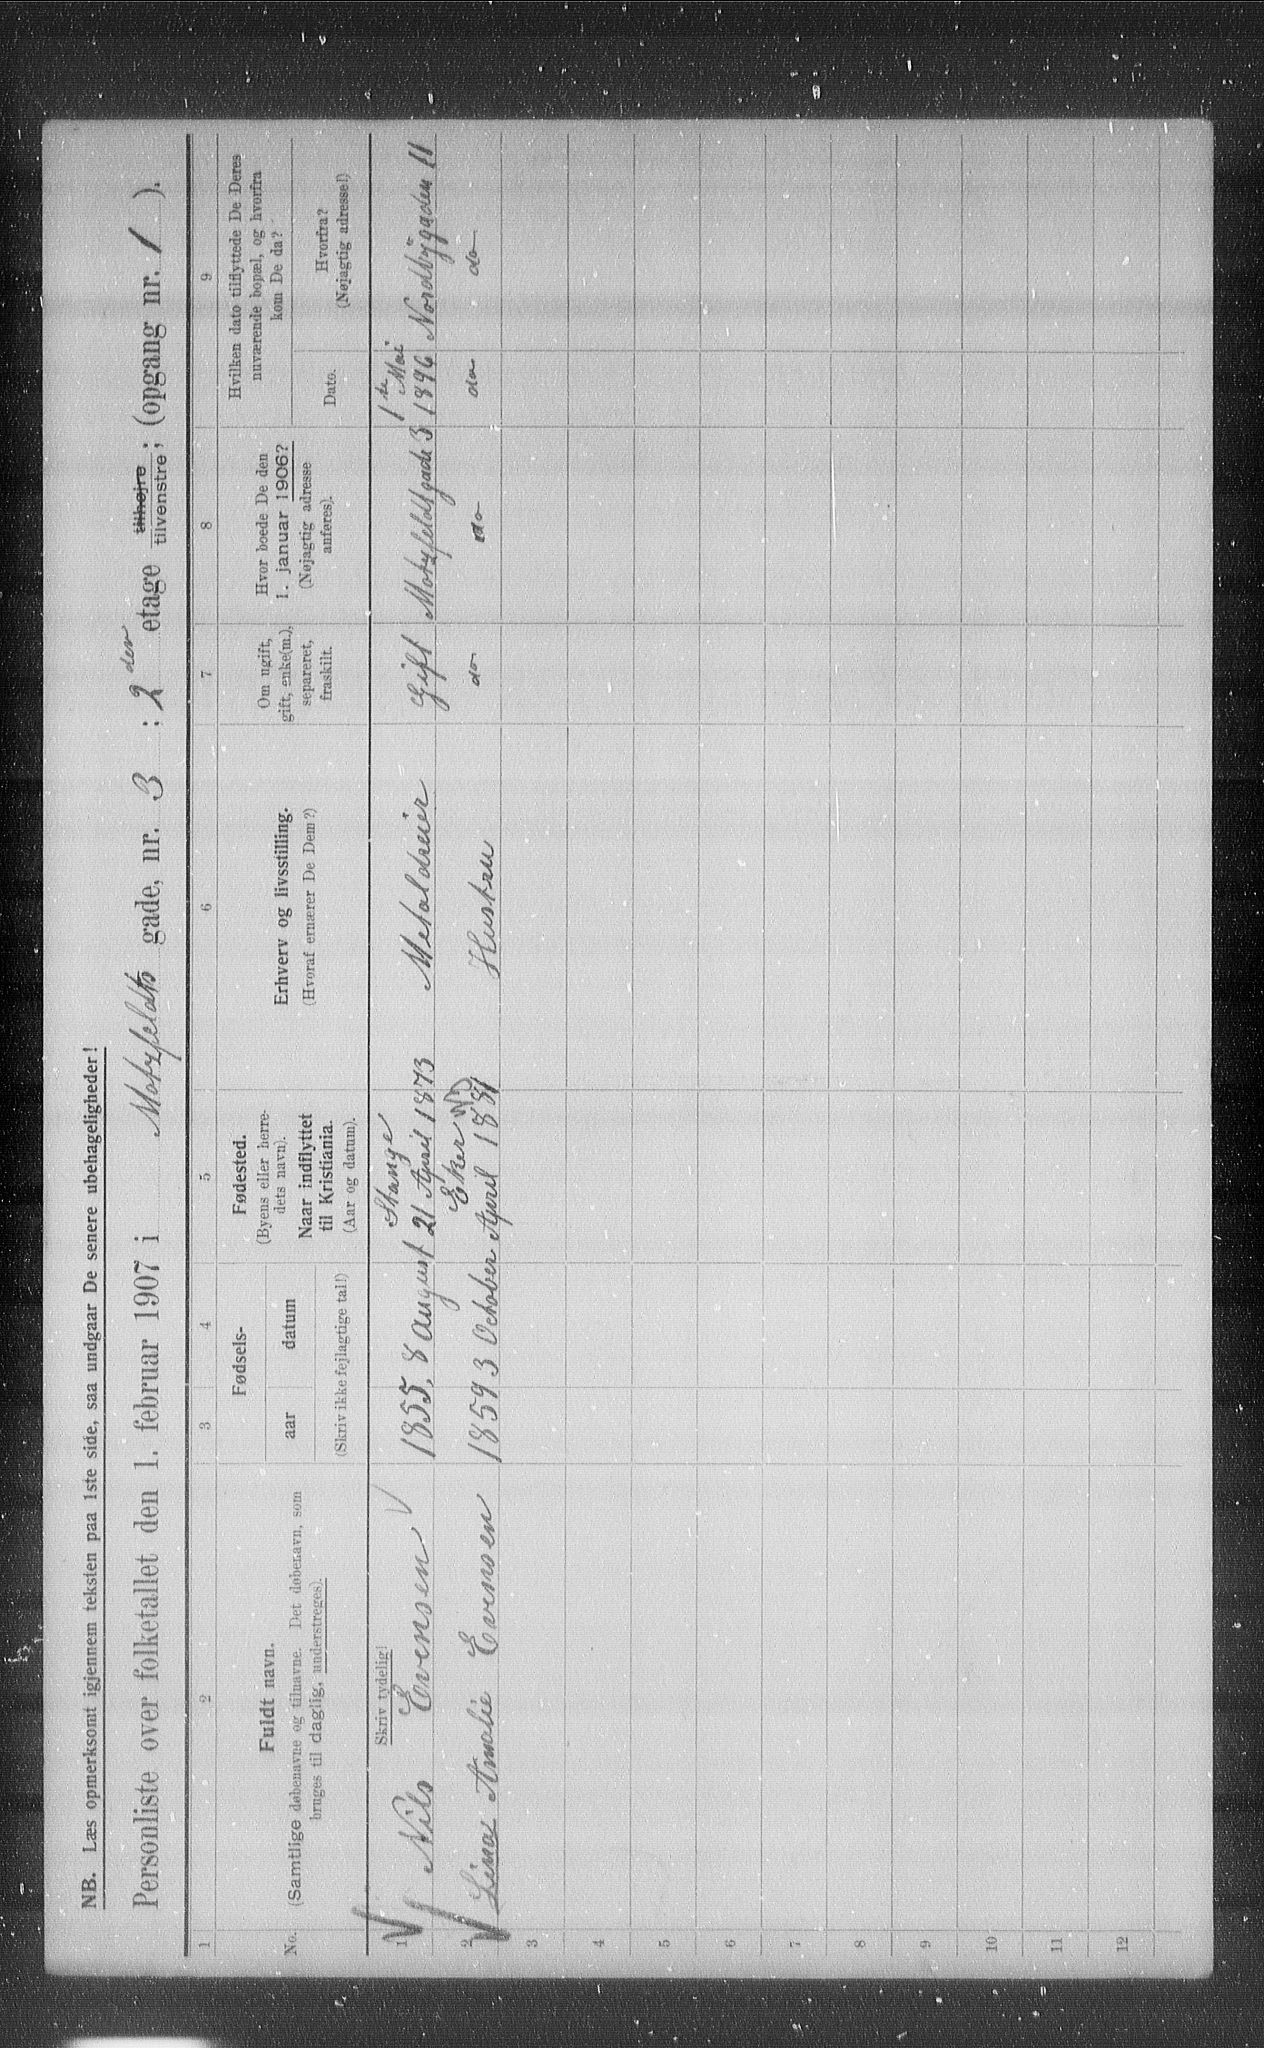 NB. Læs opmerksomt igjennem teksten paa 1ste side, saa undgaar De senere ubehageligheder!
Personliste over folketallet den 1. februar 1907 i Motzfeldts gade, nr. 3 : 2den etage tilhøjre tilvenstre; (opgang nr. 1 ).
1 2 3 4 5 6 7 8 9
No.
Fuldt navn.
(Samtlige døbenavne og tilnavne. Det døbenavn, som
bruges til daglig, understreges).
Fødsels-
aar datum
(Skriv ikke fejlagtige tal!)
Fødested.
(Byens eller herre-
dets navn).
Naar indflyttet
til Kristiania.
(Aar og datum).
Erhverv og livsstilling.
(Hvoraf ernærer De Dem?)
Om ugift,
gift, enke(m.),
separeret,
fraskilt.
Hvor boede De den
1. januar 1906?
(Nøjagtig adresse
anføres).
Hvilken dato tilflyttede De Deres
nuværende bopæl, og hvorfra
kom De da?
Dato.
Hvorfra?
(Nøjagtig adresse!)
Skriv tydelig!
Stange 1te Mai
1 Nils Evensen 1855 8 August 21 April 1873 Metaldreier Gift Motzfeldtsgade 3 1896 Nordbygaden 11
Eker
2 Lina Amalie Evensen 1859 3 October April 1881 Hustru do do do do
3
4
5
6
7
8
9
10
11
12